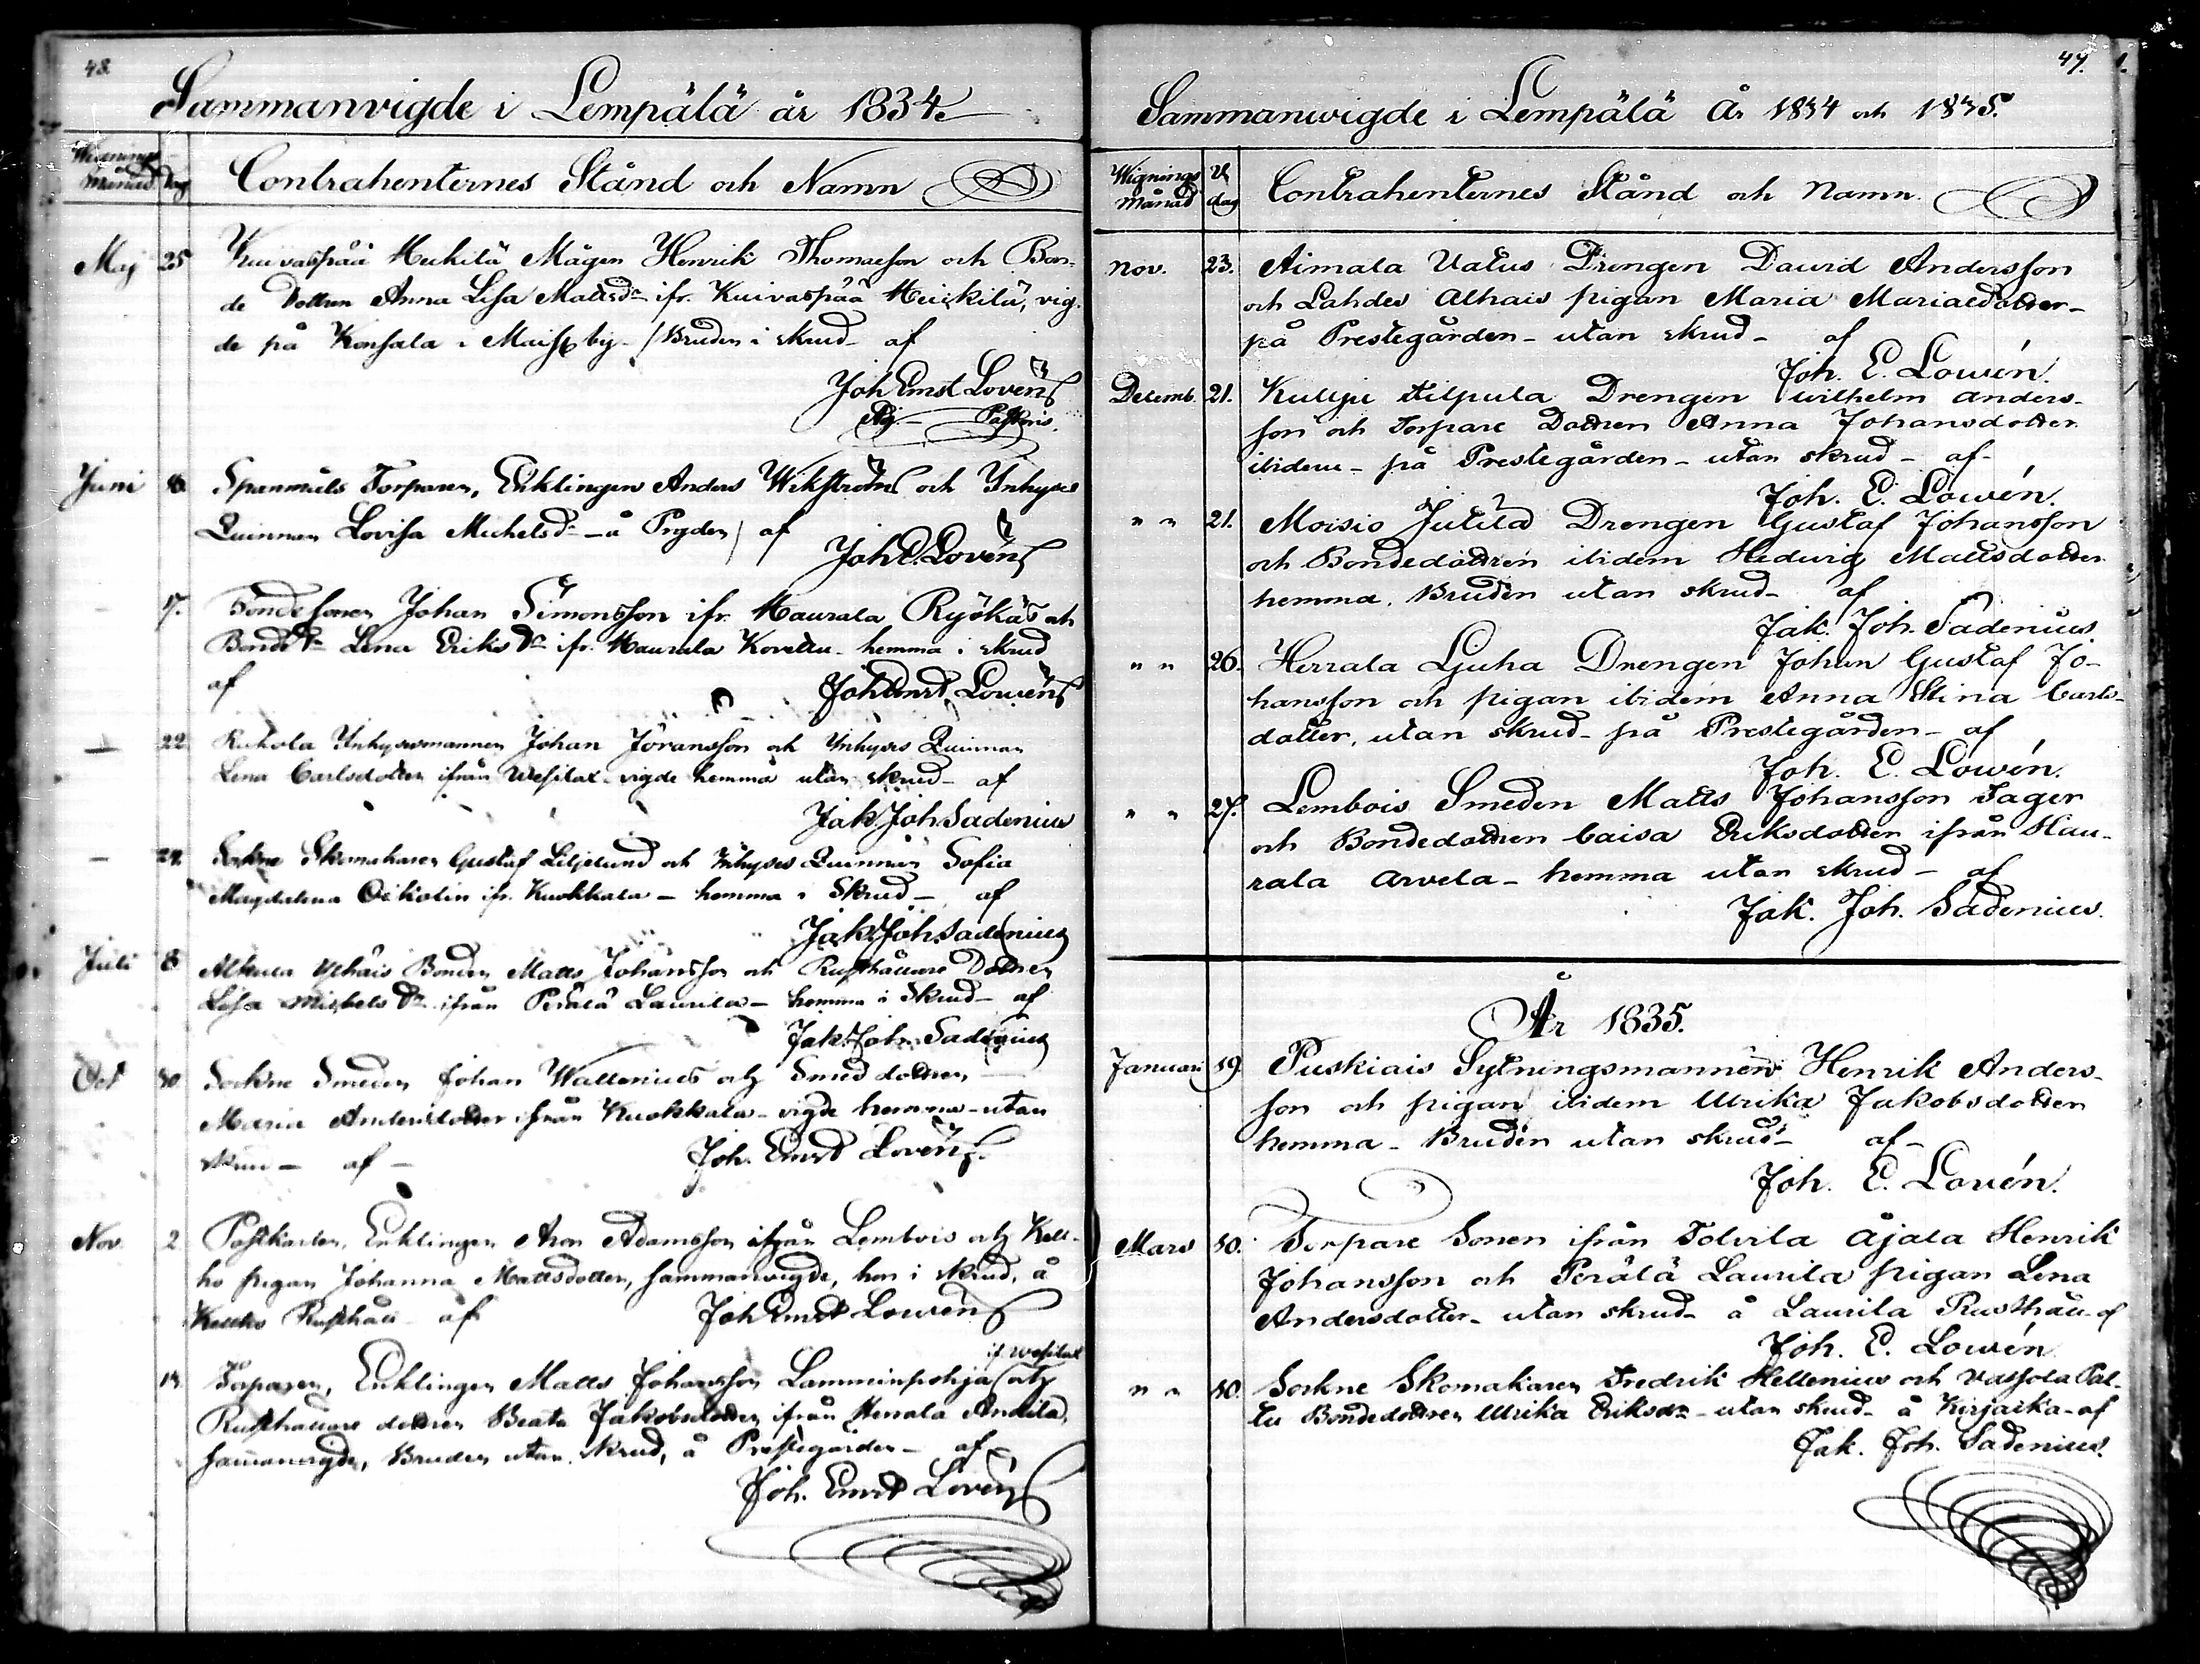 48.
Sammanvigde i Lempälä år 1834.
Wignings Månad dag
Contrahenternes Stånd och Namn
Maj 25 Kuivaspää Heikilä Mågen Henrik Thomasson och Bon-
de Dottren Anna Lisa Mattsdr ifr. Kuivaspää Heickilä, vig-
de på Konsala i Maisby - / Bruden i skrud - af
Joh Ernst Lovén
Juni 8 Spannuils Torparen, Enklingen Anders Wikström och Inhyses
Quinnan Lovisa Michelsdr - å Prgden / af
Joh E. Lovén
17. Bondesonen Johan Simonsson ifr. Haurala Ryökäs och
Bonde dr Lena Eriks dr ifr. Haurala Koveltu - hemma i skrud
af
Joh Ernst Lowén
- 22 Kukola Inhysesmannen Johan Jöransson och Inhyses Quinnan
Lena Carlsdotter ifrån Wesilax - vigde hemma utan skrud - af
Jak. Joh. Sadenius
- 24. Sockne Skomakaren Gustaf Liljelund och Inhyses Quinnan Sofia
Magdalena Ockolin ifr. Kuokkala - hemma i Skrud - af
Jak. Joh. Sadenius
Juli 8 Alkula Yhäis Bonden Matts Johansson och Rusthållare Dottren
Lisa Michels dr ifrån Perälä Laurila - hemma i Skrud - af
Jak. Joh. Sadenius
Oct 30. Sockne Smeden Johan Wallenius och Smed dottren -
Maria Andersdotter ifrån Kuokkala - vigde hemma - utan
skrud - af -
Joh. Ernst Lovén
Nov. 2 Postkarlen, Enklingen Aron Adamsson ifrån Lembois och Kell-
ho pigan Johanna Mattsdotter, sammanvigde, hon i skrud, å
Kellho Rusthåll - af Joh Ernst Lowén
if. Wesilax
14. Torparen, Enklingen Matts Johansson Lamminpohja och
Rusthållare dottren Beata Jakobsdotter ifrån Herrala Anttila,
sammanvigde, Bruden utan skrud, å Prestegården - af
Joh. Ernst Lovén
49.
Sammanwigde i Lempälä År 1834 och 1835.
Wignings Månad V dag
Contrahenternes Stånd och Namn.
Nov. 23. Aimala Uatus Drengen David Andersson
och Lahdes Alhais pigan Maria Mariaedotter -
på Prestegården - utan skrud - af
Joh. E. Lowén.
Decemb. 21. Kulju Kilpula Drengen Wilhelm Anders-
son och Torpare Dottren Anna Johansdotter
ibidem - på Prestegården - utan skrud - af -
Joh. E. Lowén.
" " 21. Moisio Jutila Drengen Gustaf Johansson
och Bondedottren ibidem Hedwig Mattsdotter
hemma. Bruden utan skrud - af
Jak. Joh. Sadenius.
" " 26. Herrala Ljuha Drengen Johan Gustaf Jo-
hansson och pigan ibidem Anna Stina Carls-
dotter, utan skrud - på Prestegården - af
Joh. E. Lowén.
" " 27. Lembois Smeden Matts Johansson Jager
och Bondedottren Caisa Eriksdotter ifrån Hau-
rala Arvela - hemma utan skrud - af
Jak. Joh. Sadenius.
År 1835.
Januari 19 Puskiais Sytningsmannen Henrik Anders-
son och pigan ibidem Ulrika Jakobsdotter
hemma - Bruden utan skrud - af -
Joh. E. Lovén.
Mars 10. Torpare Sonen ifrån Tolvila Äjala Henrik
Johansson och Perälä Laurila pigan Lena
Andersdotter - utan skrud - å Laurila Rusthåll - af
Joh. E. Lowén
" " 10. Sockne Skomakaren Fredrik Hellenius och Vassola Pal-
tu Bondedottren Ulrika Eriksdr - utan skrud - å Kirjaska - af
Jak. Joh. Sadenius.